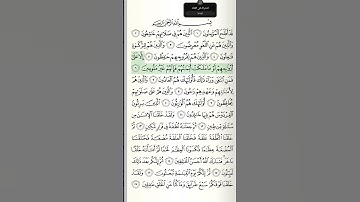 بِسْمِ اللَّهِ الرَّحْمَٰنِ الرَّحِيمِ
قَدْ أَفْلَحَ الْمُؤْمِنُونَ ١ الَّذِينَ هُمْ فِي صَلَاتِهِمْ خَاشِعُونَ ٢
وَالَّذِينَ هُمْ عَنِ اللَّغْوِ مُعْرِضُونَ ٣ وَالَّذِينَ هُمْ لِلزَّكَوٰةِ
فَاعِلُونَ ٤ وَالَّذِينَ هُمْ لِفُرُوجِهِمْ حَافِظُونَ ٥ إِلَّا عَلَىٰ
أَزْوَاجِهِمْ أَوْ مَا مَلَكَتْ أَيْمَانُهُمْ فَإِنَّهُمْ غَيْرُ مَلُومِينَ ٦
فَمَنِ ابْتَغَىٰ وَرَاءَ ذَٰلِكَ فَأُولَٰئِكَ هُمُ الْعَادُونَ ٧ وَالَّذِينَ هُمْ
لِأَمَانَاتِهِمْ وَعَهْدِهِمْ رَاعُونَ ٨ وَالَّذِينَ هُمْ عَلَىٰ صَلَوَاتِهِمْ
يُحَافِظُونَ ٩ أُولَٰئِكَ هُمُ الْوَارِثُونَ ١٠ الَّذِينَ يَرِثُونَ
الْفِرْدَوْسَ هُمْ فِيهَا خَالِدُونَ ١١ وَلَقَدْ خَلَقْنَا الْإِنسَانَ مِن
سُلَالَةٍ مِّن طِينٍ ١٢ ثُمَّ جَعَلْنَاهُ نُطْفَةً فِي قَرَارٍ مَّكِينٍ ١٣
ثُمَّ خَلَقْنَا النُّطْفَةَ عَلَقَةً فَخَلَقْنَا الْعَلَقَةَ مُضْغَةً فَخَلَقْنَا
الْمُضْغَةَ عِظَامًا فَكَسَوْنَا الْعِظَامَ لَحْمًا ثُمَّ أَنشَأْنَاهُ خَلْقًا
آخَرَ فَتَبَارَكَ اللَّهُ أَحْسَنُ الْخَالِقِينَ ١٤ ثُمَّ إِنَّكُم بَعْدَ ذَٰلِكَ
لَمَيِّتُونَ ١٥ ثُمَّ إِنَّكُمْ يَوْمَ الْقِيَامَةِ تُبْعَثُونَ ١٦ وَلَقَدْ
خَلَقْنَا فَوْقَكُمْ سَبْعَ طَرَائِقَ وَمَا كُنَّا عَنِ الْخَلْقِ غَافِلِينَ ١٧